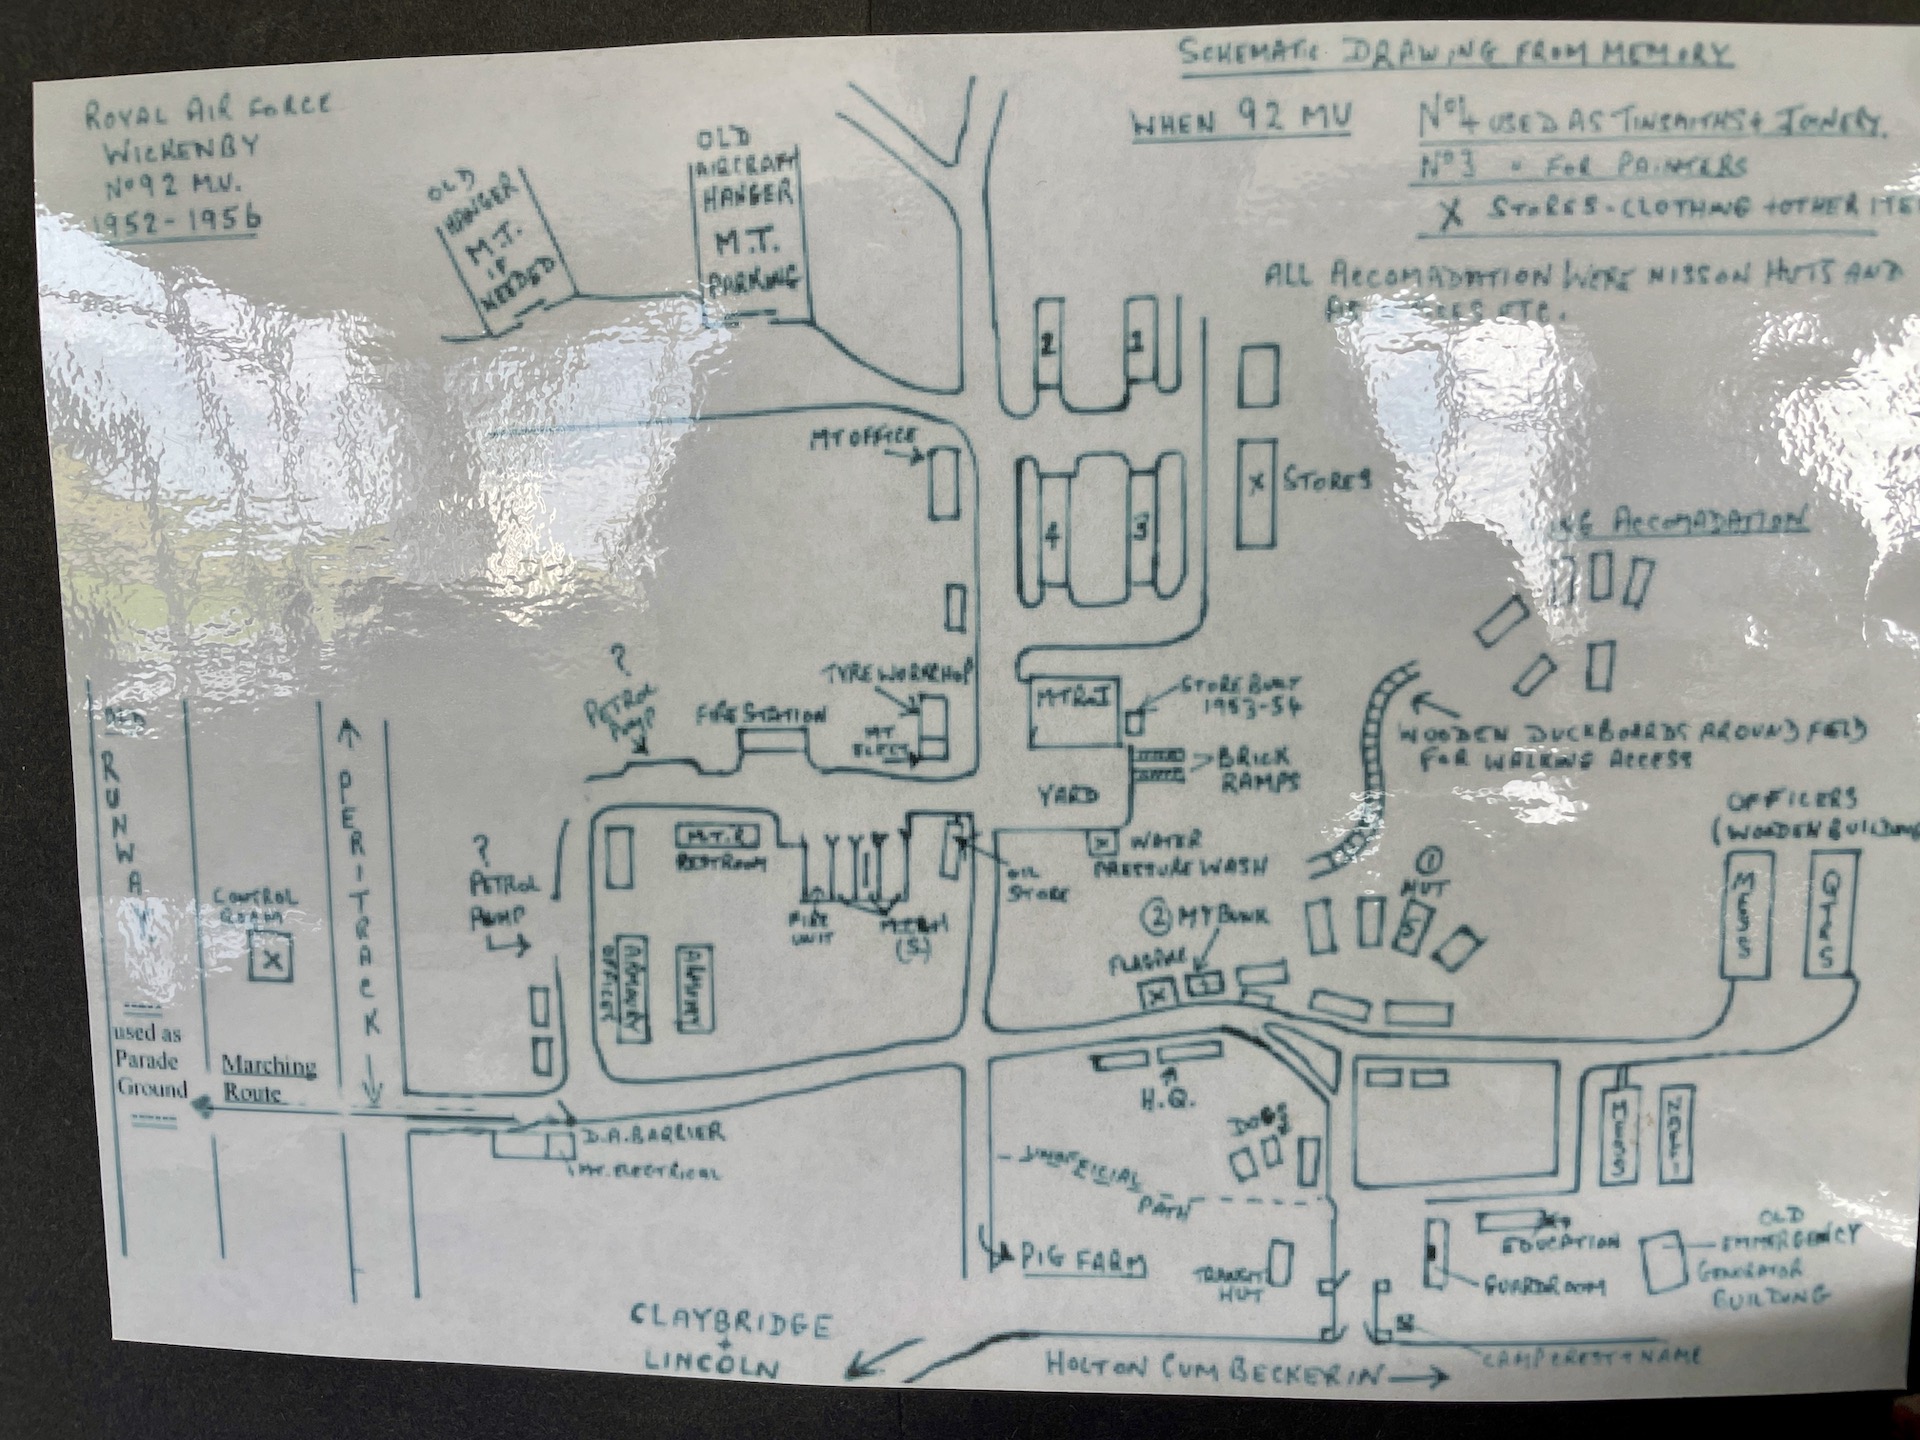 SCHEMATIC DRAWING FROM MEMORY
ROYAL AIR FORCE
WICKENBY
No 92 M.U.
1952-1956
WHEN 92 MU
No 4 USED AS TINSMITHS + JOINERY.
No 3 " FOR PAINTERS
X STORES-CLOTHING +OTHER ITE
ALL ACCOMADATION WERE NISSON HUTS AND
ETC.
OLD
HANGER
M.T.
IF
NEEDED
OLD
AIRCRAFT
HANGER
M.T.
PARKING
2
1
MT OFFICE
X STORES
4
3
ACCOMADATION
?
PETROL
PUMP
FIRE STATION
TYRE WORKSHOP
MT
ELECT
STORE BUILT
1953-54
BRICK
RAMPS
YARD
WOODEN DUCKBOARDS AROUND FIELD
FOR WALKING ACCESS
OFFICERS
(WOODEN BUILDING
MESS
QTRS
OLD
RUNWAY
PERITRACK
CONTROL
ROOM
X
?
PETROL
PUMP
M.T.R
RESTROOM
FIRE
UNIT
(S)
OIL
STORE
X WATER
PRESSURE WASH
1
HUT
5
2 MY BUNK
X
ARMOURY
OFFICES
used as
Parade
Ground
Marching
Route
D.A. BARRIER
MT. ELECTRICAL
H.Q.
DOGS
UNOFFICIAL
PATH
MESS
NAAFI
PIG FARM
TRANSIT
HUT
EDUCATION
GUARDROOM
OLD
EMMERGENCY
GENERATOR
BUILDING
CLAYBRIDGE
+
LINCOLN
HOLTON CUM BECKERIN
CAMP CREST + NAME